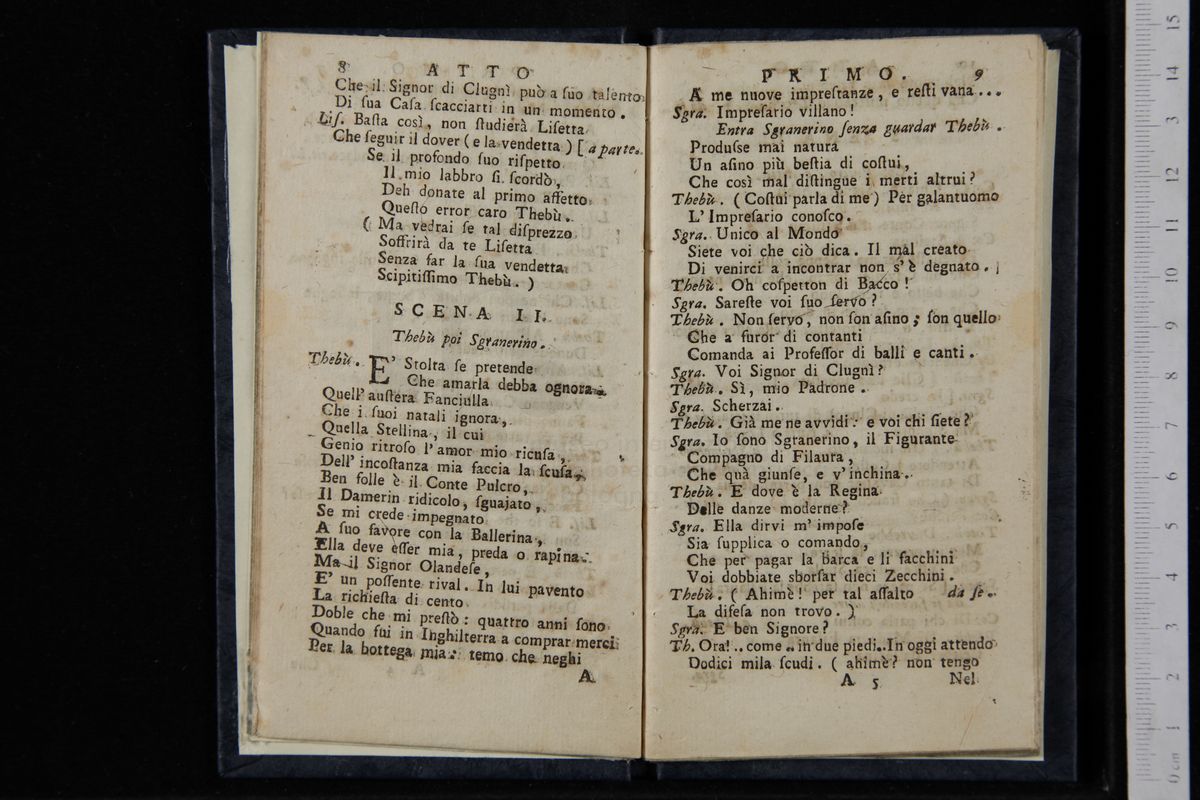 8 ATTO
Che il Signor di Clugnì può a ſuo talento
Di ſua Caſa ſcacciarti in un momento.
Liſ. Baſta così, non ſtudierà Liſetta
Che ſeguir il dover (e la vendetta) [a parte.
Se il profondo ſuo riſpetto
Il mio labbro ſi ſcordò,
Deh donate al primo affetto
Queſto error caro Thebù.
( Ma vedrai ſe tal diſprezzo
Soffrirà da te Liſetta
Senza far la ſua vendetta
Scipitiſſimo Thebù. )
SCENA II.
Thebù poi Sgranerino.
Thebù. E' Stolta ſe pretende
Che amarla debba ognora
Quell' auſtera Fanciulla
Che i ſuoi natali ignora,
Quella Stellina, il cui
Genio ritroſo l'amor mio ricuſa,
Dell' incoſtanza mia faccia la ſcuſa,
Ben folle è il Conte Pulcro,
Il Damerin ridicolo, ſguajato,
Se mi crede impegnato
A ſuo favore con la Ballerina,
Ella deve eſſer mia, preda o rapina.
Ma il Signor Olandeſe,
E' un poſſente rival. In lui pavento
La richieſta di cento
Doble che mi preſtò: quattro anni ſono
Quando fui in Inghilterra a comprar merci
Per la bottega mia: temo che neghi
A
PRIMO. 9
A me nuove impreſtanze, e reſti vana...
Sgra. Impreſario villano!
Entra Sgranerino ſenza guardar Thebù.
Produſse mai natura
Un aſino più beſtia di coſtui,
Che così mal diſtingue i merti altrui?
Thebù. (Coſtui parla di me) Per galantuomo
L'Impreſario conoſco.
Sgra. Unico al Mondo
Siete voi che ciò dica. Il mal creato
Di venirci a incontrar non s'è degnato.
Thebù. Oh coſpetton di Bacco!
Sgra. Sareſte voi ſuo ſervo?
Thebù. Non ſervo, non ſon aſino; ſon quello
Che a furor di contanti
Comanda ai Profeſſor di balli e canti.
Sgra. Voi Signor di Clugnì?
Thebù. Sì, mio Padrone.
Sgra. Scherzai.
Thebù. Già me ne avvidi: e voi chi ſiete?
Sgra. Io ſono Sgranerino, il Figurante
Compagno di Filaura,
Che quà giunſe, e v'inchina.
Thebù. E dove è la Regina
Delle danze moderne?
Sgra. Ella dirvi m'impoſe
Sia ſupplica o comando,
Che per pagar la barca e li facchini
Voi dobbiate sborſar dieci Zecchini.
Thebù. ( Ahimè! per tal aſſalto da ſe.
La difeſa non trovo. )
Sgra. E ben Signore?
Th. Ora!.. come.. in due piedi..In oggi attendo
Dodici mila ſcudi. ( ahimè? non tengo
A 5 Nel